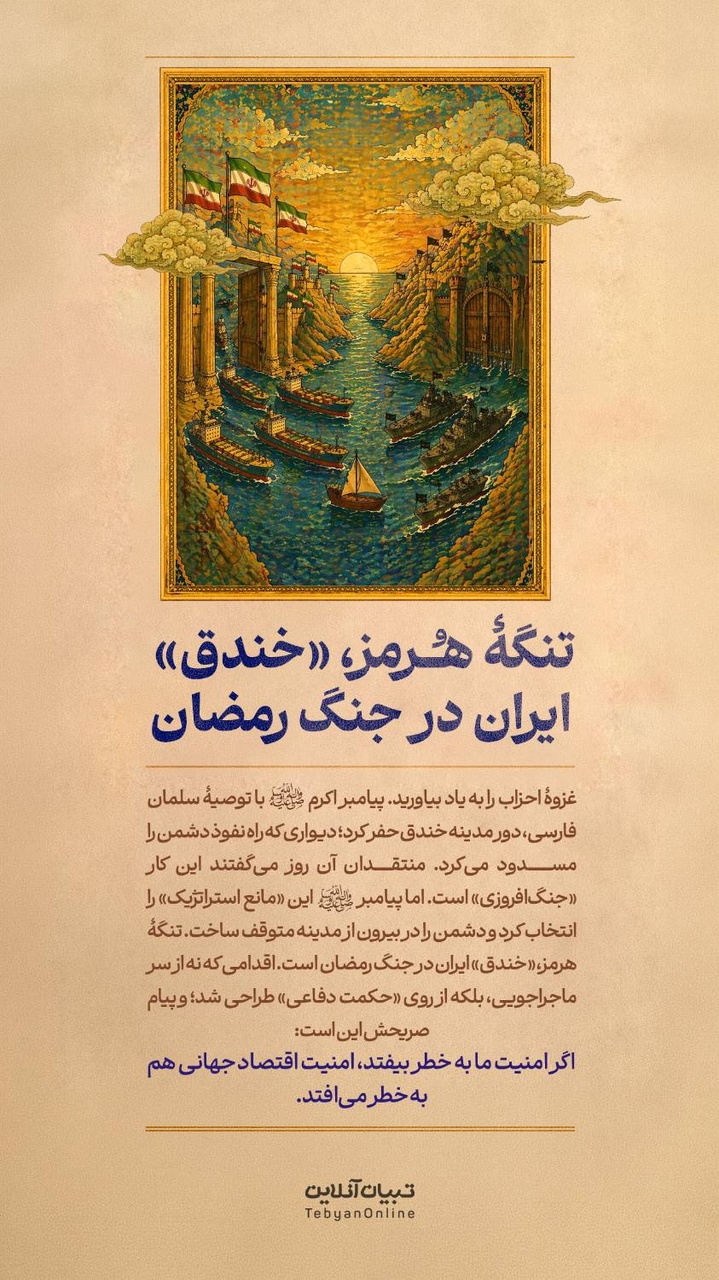 تنگهٔ هـُرمز، «خندق»
ایران در جنگ رمضان
غزوهٔ احزاب را به یاد بیاورید. پیامبر اکرم ﷺ با توصیهٔ سلمان
فارسی، دور مدینه خندق حفر کرد؛ دیواری که راه نفوذ دشمن را
مسدود می‌کرد. منتقدان آن روز می‌گفتند این کار
«جنگ‌افروزی» است. اما پیامبر ﷺ این «مانع استراتژیک» را
انتخاب کرد و دشمن را در بیرون از مدینه متوقف ساخت. تنگهٔ
هرمز، «خندق» ایران در جنگ رمضان است. اقدامی که نه از سر
ماجراجویی، بلکه از روی «حکمت دفاعی» طراحی شد؛ و پیام
صریحش این است:
اگر امنیت ما به خطر بیفتد، امنیت اقتصاد جهانی هم
به خطر می‌افتد.
تبیان‌آنلاین
TebyanOnline